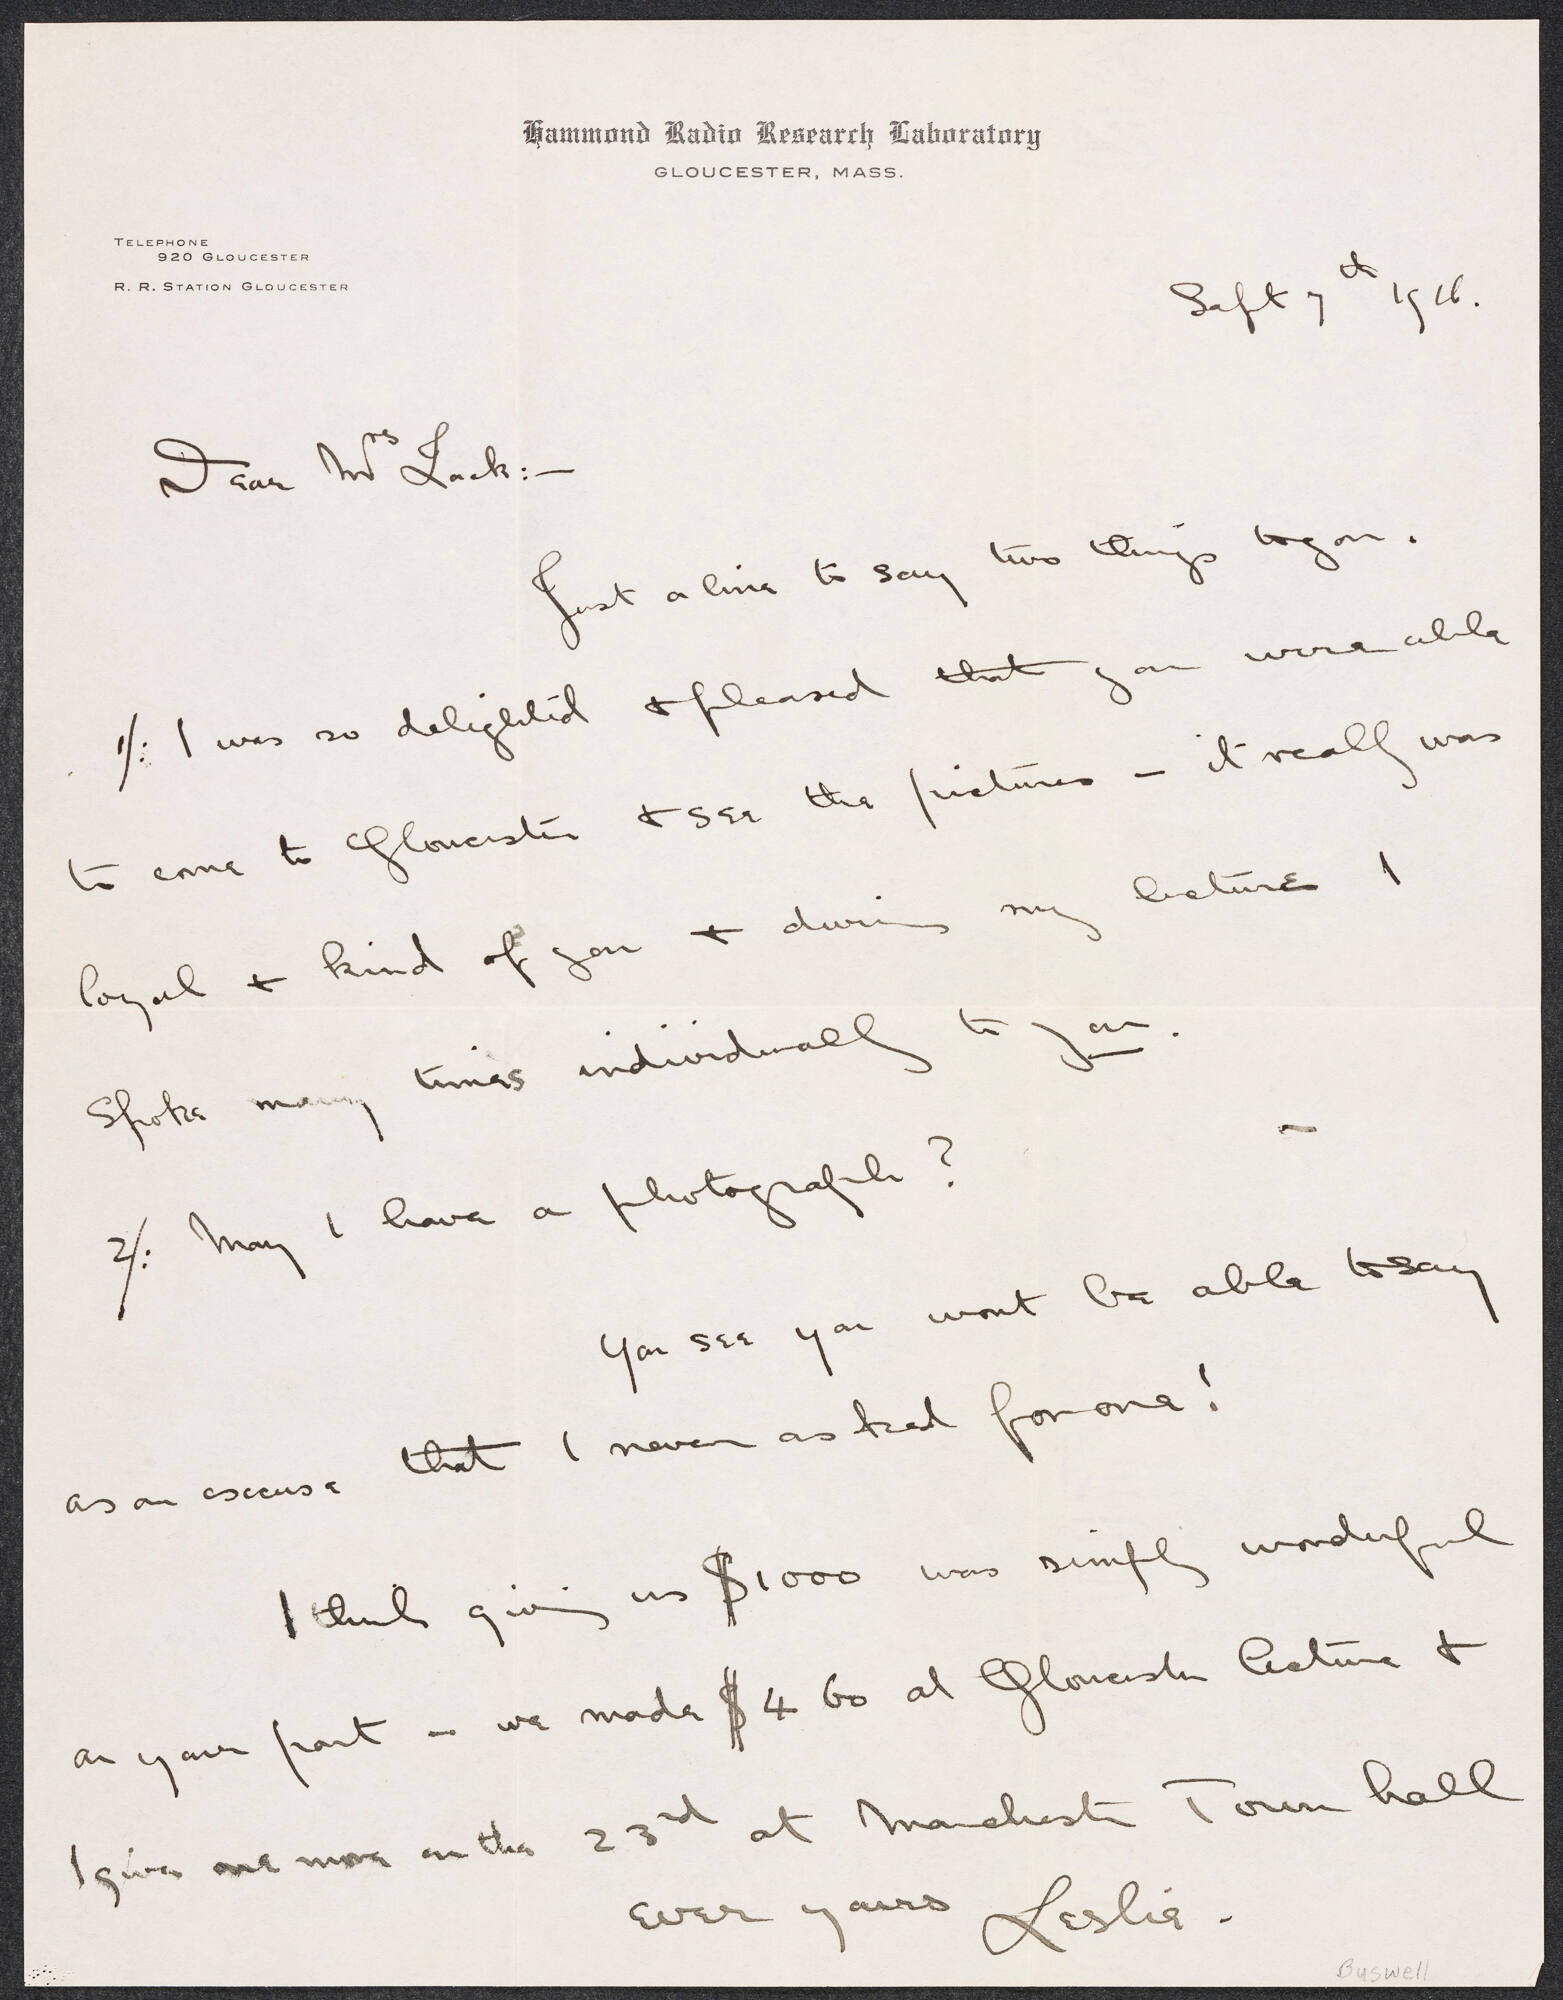 Hammond Radio Research Laboratory
GLOUCESTER, MASS.
TELEPHONE
920 GLOUCESTER
R. R. STATION GLOUCESTER
Sept 7th 1916.
Dear Mrs Jack:—
Just a line to say two things to you.
1/: I was so delighted & pleased that you were able
to come to Gloucester & see the pictures – it really was
loyal & kind of you & during my lecture I
spoke many times individually to you.
2/: May I have a photograph?
You see you wont be able to say
as an excuse that I never asked for one!
I think giving us $1000 was simply wonderful
on your part – we made $460 at Gloucester lecture &
I give one more on the 23rd at Manchester Town hall
Ever yours Leslie.
Buswell